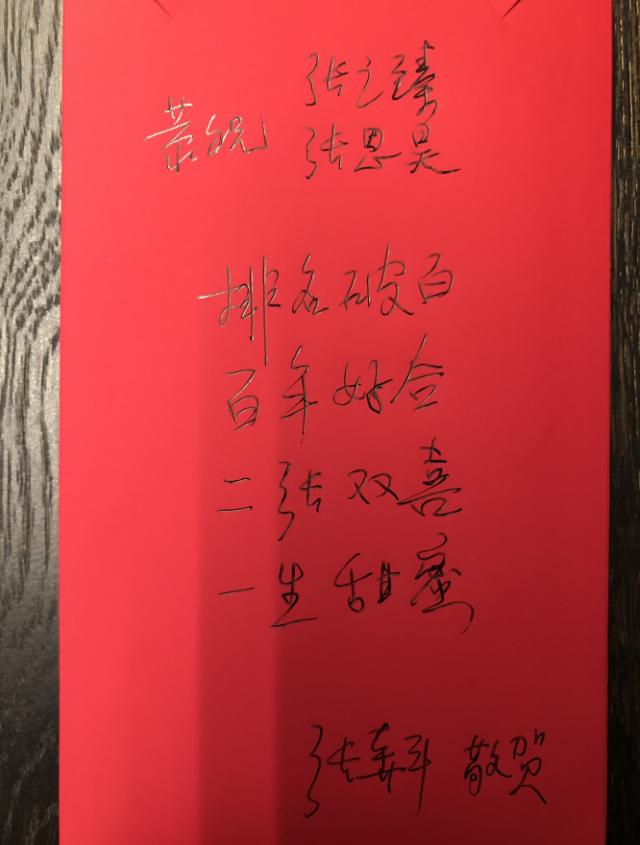 张之臻
恭祝
张恩昊
排名破百
百年好合
二张双喜
一生甜蜜
张奔斗 敬贺